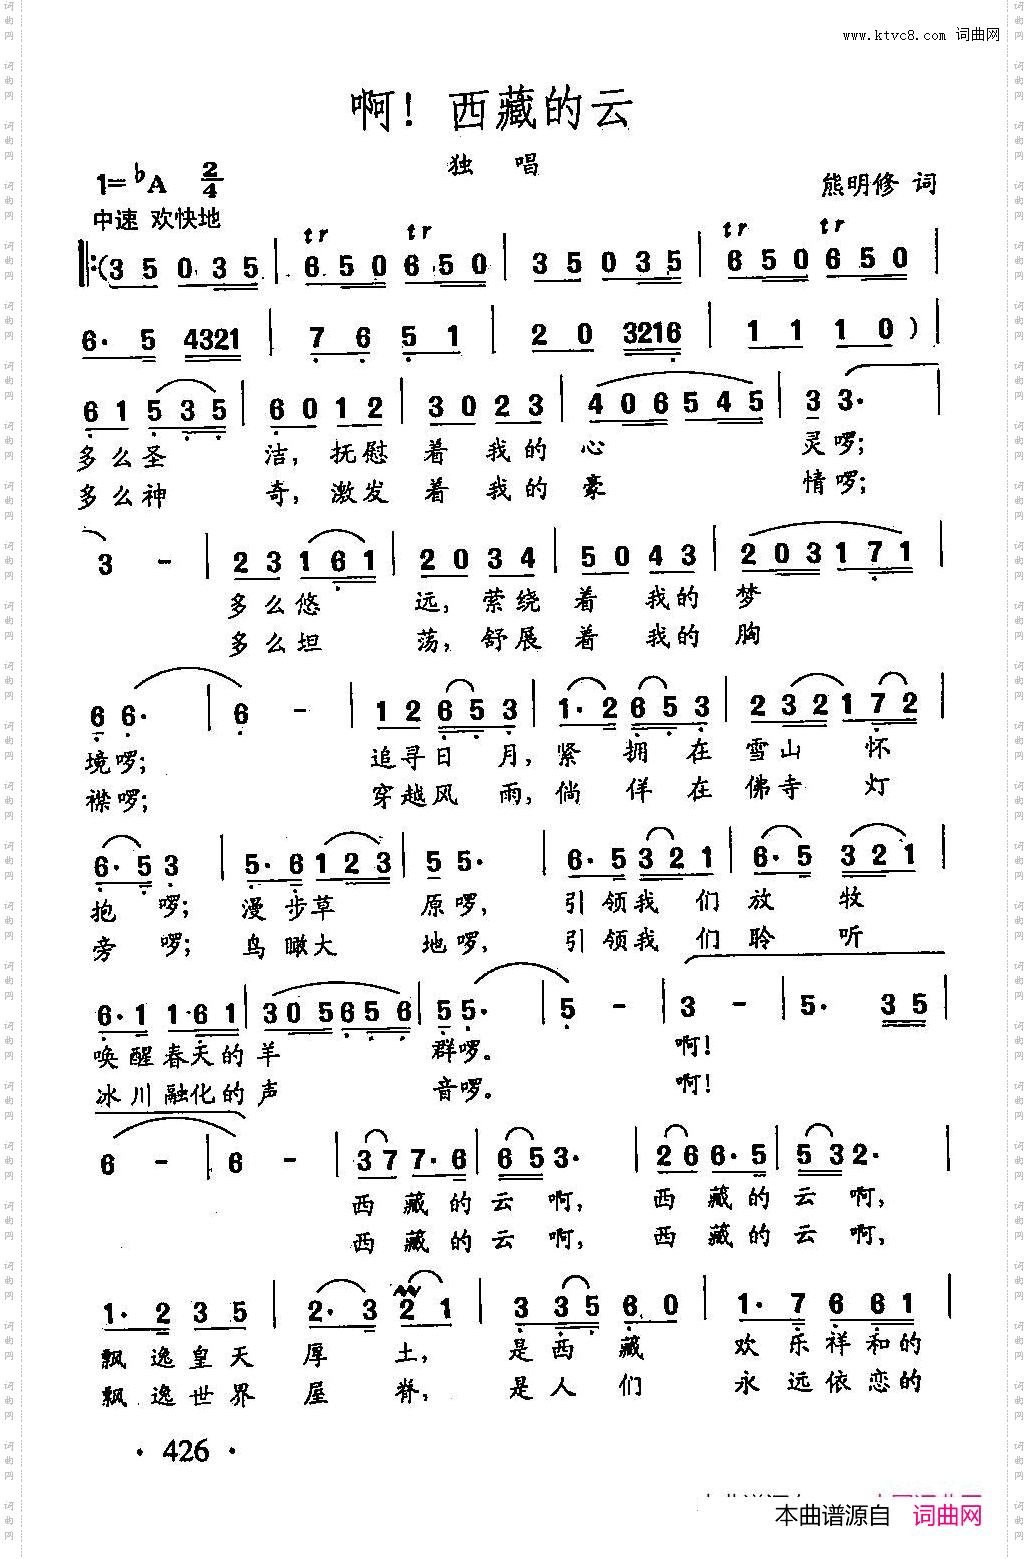 www.ktvc8.com 词曲网
啊！西藏的云
独 唱
1=♭A 2/4
熊明修 词
中速 欢快地
tr tr tr tr
(3 5 0 3 5 | 6 5 0 6 5 0 | 3 5 0 3 5 | 6 5 0 6 5 0 |
6· 5 4321 | 7 6 5 1 | 2 0 3216 | 1 1 1 0 ) |
6 1 5 3 5 | 6 0 1 2 | 3 0 2 3 | 4 0 6 5 4 5 | 3 3· |
多么圣 洁，抚慰 着 我的 心 灵啰；
多么神 奇，激发 着 我的 豪 情啰；
3 - | 2 3 1 6 1 | 2 0 3 4 | 5 0 4 3 | 2 0 3 1 7 1 |
多么悠 远，萦绕 着 我的 梦
多么坦 荡，舒展 着 我的 胸
6 6· | 6 - | 1 2 6 5 3 | 1· 2 6 5 3 | 2 3 2 1 7 2 |
境啰； 追寻日 月，紧 拥 在 雪山 怀
襟啰； 穿越风 雨，倘 佯 在 佛寺 灯
6· 5 3 | 5· 6 1 2 3 | 5 5· | 6· 5 3 2 1 | 6· 5 3 2 1 |
抱 啰；漫步草 原啰， 引领我 们 放 牧
旁 啰；鸟瞰大 地啰， 引领我 们 聆 听
6· 1 1 6 1 | 3 0 5 6 5 6 | 5 5· | 5 - | 3 - | 5· 3 5 |
唤醒春天的羊 群啰。 啊！
冰川融化的声 音啰。 啊！
6 - | 6 - | 3 7 7· 6 | 6 5 3· | 2 6 6· 5 | 5 3 2· |
西 藏 的 云 啊， 西 藏 的 云 啊，
西 藏 的 云 啊， 西 藏 的 云 啊，
1· 2 3 5 | 2· 3 2 1 | 3 3 5 6 0 | 1· 7 6 6 1 |
飘 逸 皇 天 厚 土， 是 西 藏 欢 乐 祥 和 的
飘 逸 世 界 屋 脊， 是 人 们 永 远 依 恋 的
· 426 ·
本曲谱源自 词曲网